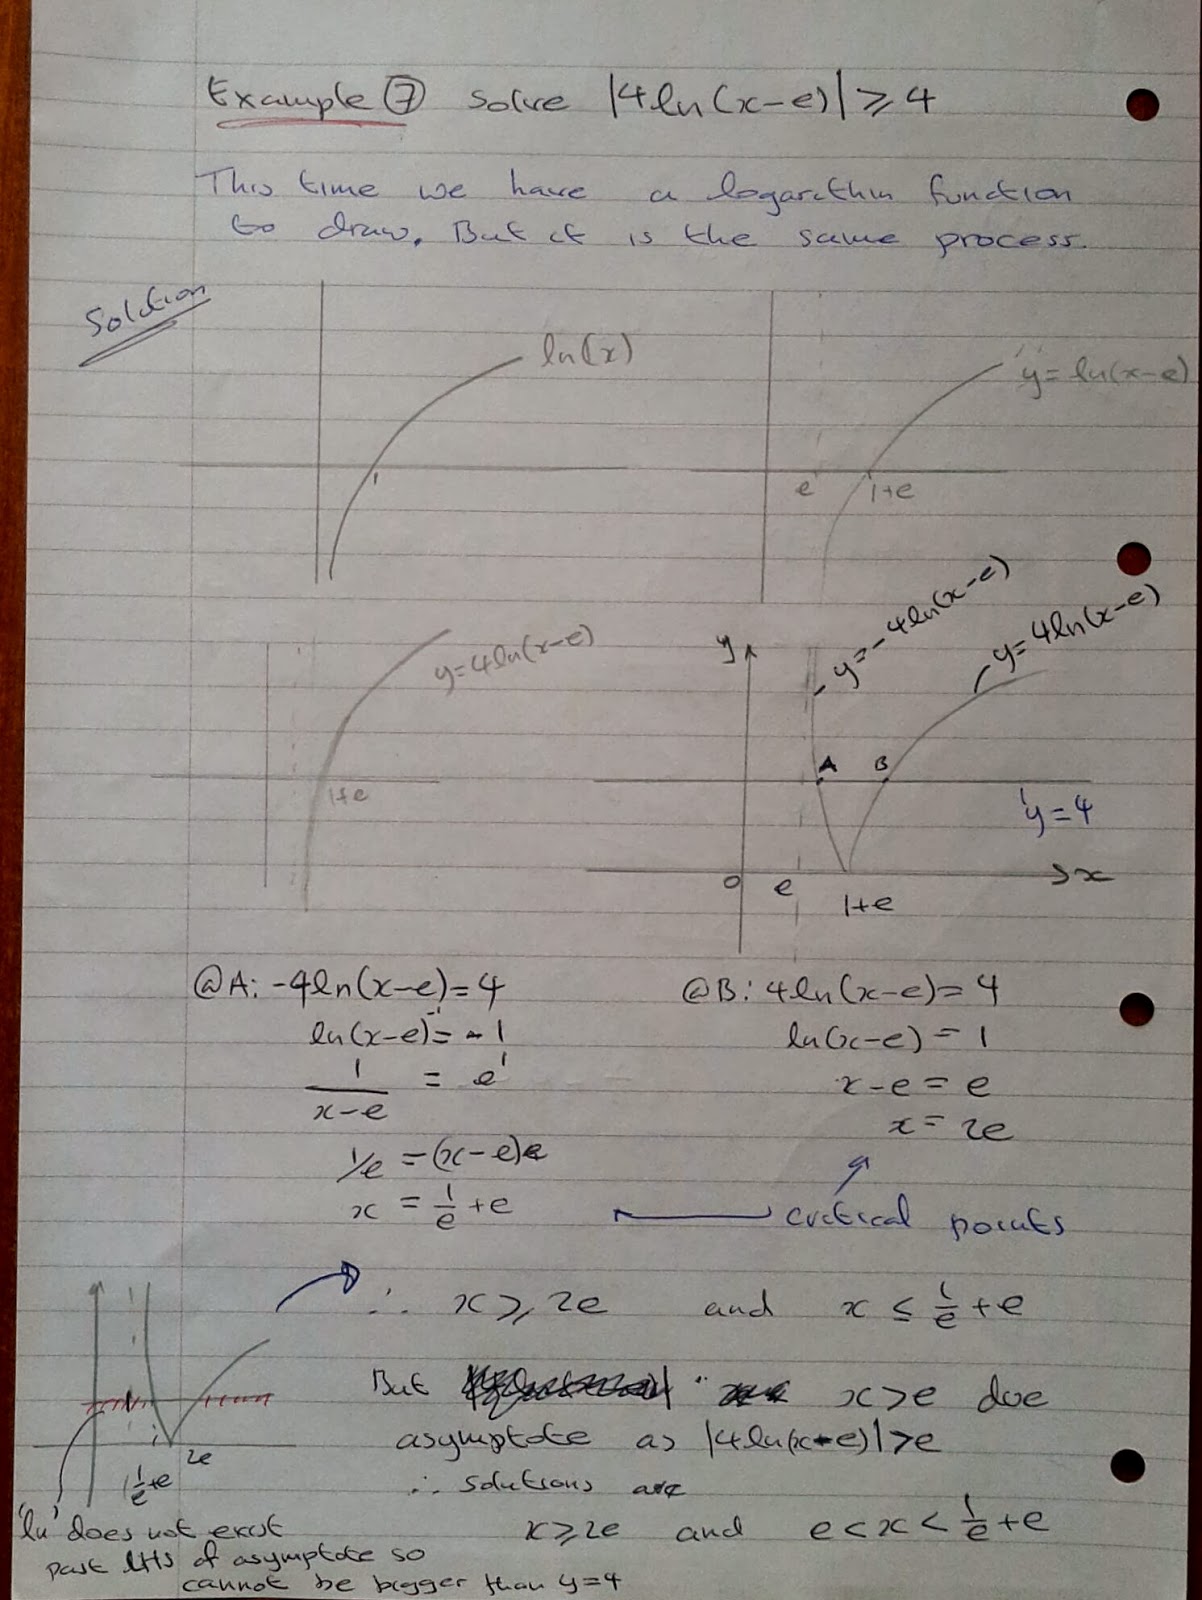 Example ⑦ Solve |4ln(x-e)| ≥ 4
This time we have a logarithm function
to draw. But it is the same process.
Solution
ln(x)
1
y = ln(x-e)
e
1+e
y=4ln(x-e)
1+e
y=-4ln(x-e)
y=4ln(x-e)
y
A
B
y=4
0
e
1+e
x
@A: -4ln(x-e)=4
ln(x-e)⁻¹ = 1
1/(x-e) = e¹
1/e = (x-e)
x = 1/e + e
@B: 4ln(x-e)=4
ln(x-e) = 1
x-e = e
x = 2e
critical points
∴ x ≥ 2e and x ≤ 1/e + e
But x>e due
asymptote as |4ln(x-e)|>e
∴ solutions are
x ≥ 2e and e < x < 1/e + e
2e
1/e+e
'ln' does not exist
past LHS of asymptote so
cannot be bigger than y=4